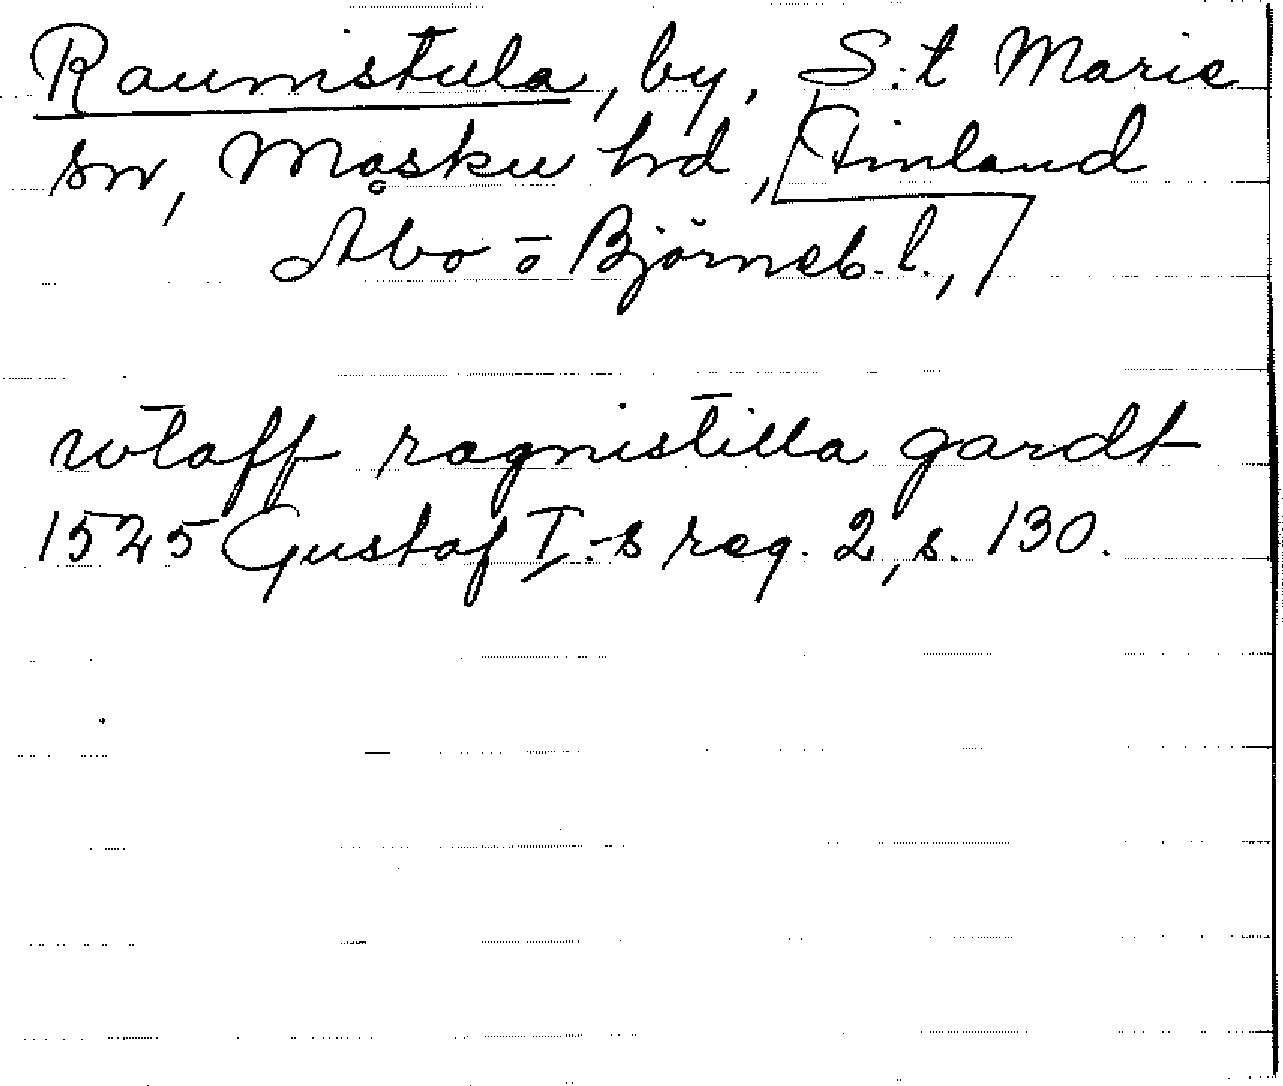 Raumistula, by, S:t Marie
sn, Masku hrd, Finland
Åbo - o Björneb. l.,
wtaff ragnistilla gardt
1525 Gustaf I:s reg. 2, s. 130.